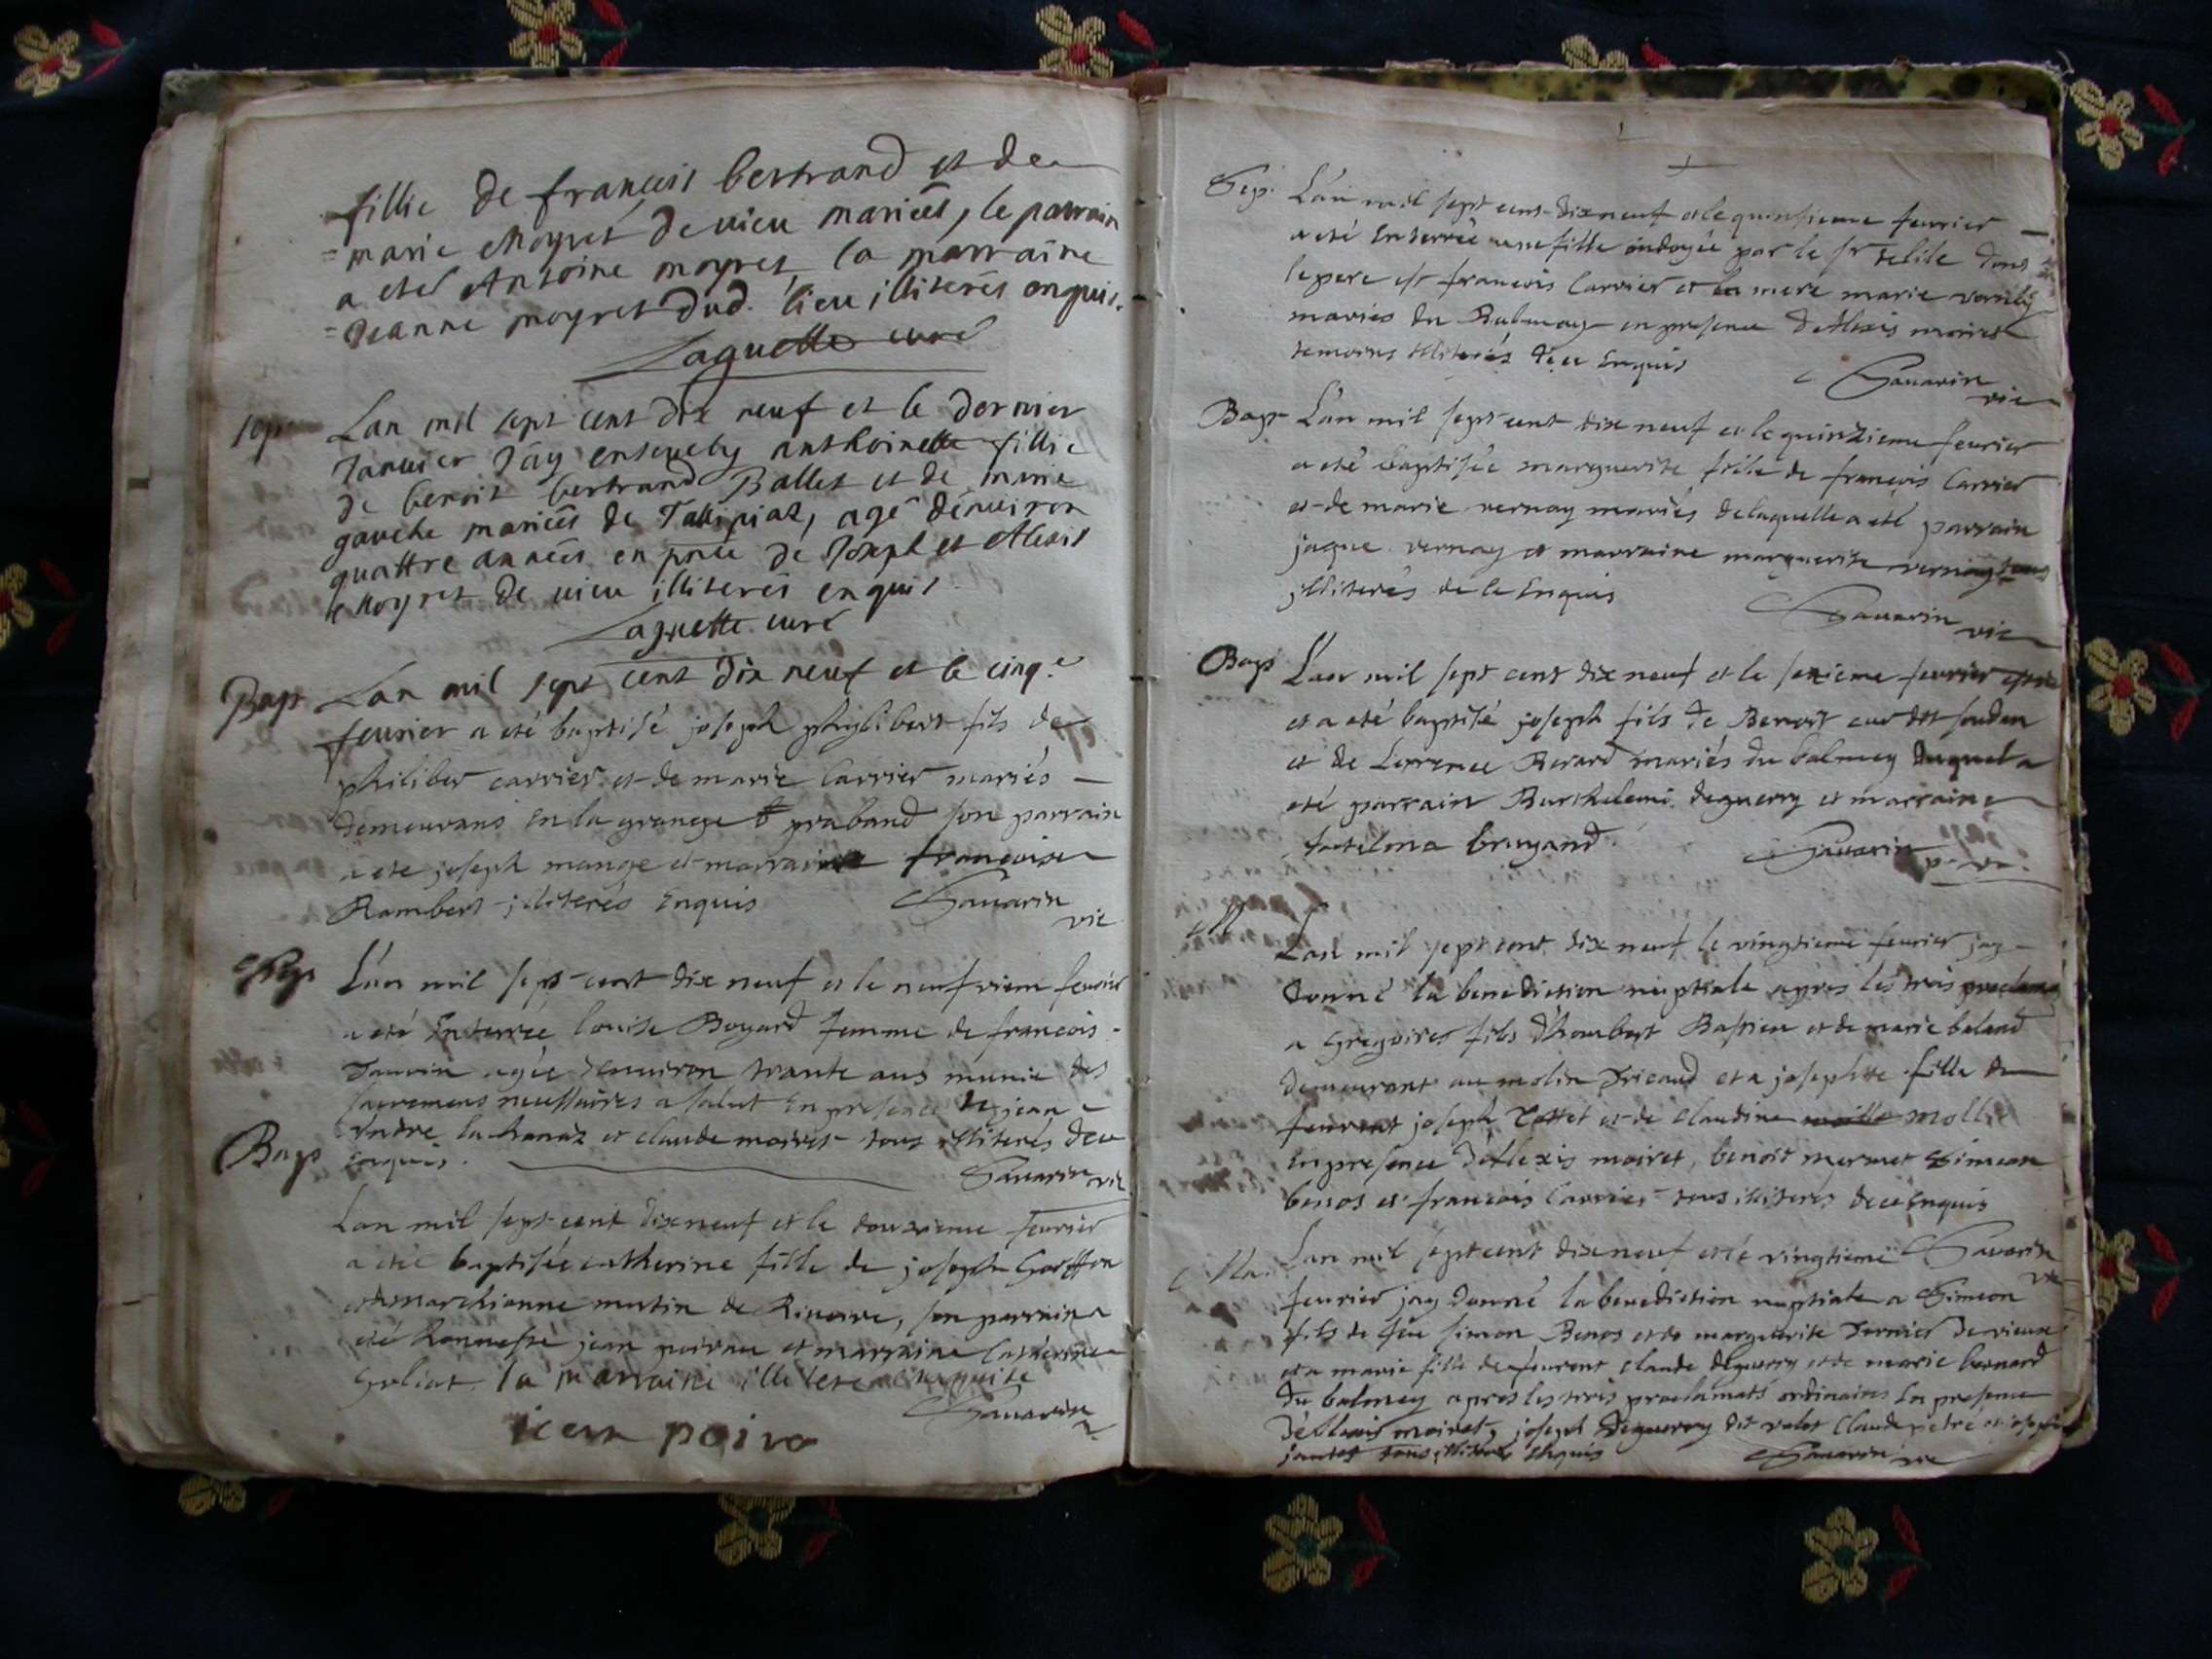 fillie de francois bertrand et de
marie Moyret de vieu mariés, le parrain
a eté Antoine moyret la marraine
Jeanne moyret dud. lieu illiterés enquis.
Laguette curé
sep
Lan mil sept cent dix neuf et le dernier
Janvier J'ay ensevely anthoinette fillie
de benoit bertrand Ballet et de marie
gauche mariés de, agé dénviron
quattre années en pñce de Joseph et Alexis
Moyret de vieu illiterés enquis.
Laguette curé
Bap
Lan mil sept cent dix neuf et le cinq.e
feurier a eté baptisé joseph phylibert fils de
philiber carrier et de marie Carrier mariés
demeurans en la grange praband son parrain
a ete joseph mange et marraine francoise
Rambert jliterés Enquis
Sauarin
vic
Sep
L'an mil sept cent dix neuf et le neufviem feurier
a eté Enterrée louise Boyard femme de francois
Januin agée denuiron trante ans munie des
sacremens necessaires a salut En presence de jean
Andre la hanaz et claude moiret tous illiterés de ce
enquis.
Sauarin vic
Bap
Lan mil sept cent dix neuf et le douzieme feurier
a eté baptisée catherine fille de joseph Goiffon
et marchianne mutin de Rinoire, son parrain a
eté honneste jean poirau et marraine Catherine
Goliat la marraine illiterée enquise
Sauarin
jean poiro
Sep.
L'an mil sept cent dix neuf et le quinsieme feurier
a eté Enterrée une fille ondoyée par le sr delile dont
le pere est francois Carrier et la mere marie vernay
mariés du Balmay en presence d'Alexis moiret
temoins illiterés de ce Enquis
Sauarin
vic
Bap
L'an mil sept cent dix neuf et le quinzieme feurier
a eté baptisée marguerite fille de françois Carrier
et de marie vernay mariés de laquelle a eté parrain
jaque vernay et marraine marguerite vernay tous
jlliterés de ce Enquis
Sauarin
vic
Bap
L'an mil sept cent dix neuf et le sezieme feurier
et a eté baptisé joseph fils de Benoit
et de Lorrence Berard mariés du balmey duquel a
eté parrain Barthelemi deguerry et marraine
brugand.
Sauarin
M
Lan mil sept cent dix neuf le vingtieme feurier jay
donné la benediction nuptiale apres les trois proclamas
a Gregoires fils d'humbert Bastien et de marie baland
demeurant au molin Dricaud et a josephte fille de
feurent joseph et de Claudine molle
en presence d'Alexis moiret, benoit mermet Simeon
benos et francois Carrier tous illiterés de ce Enquis
Sauarin
vic
Ma.
Lan mil sept cent dix neuf et le vingtieme
feurier jay donné la benediction nuptiale a Simeon
fils de feu simon Benos et de marguerite Dernier de vieux
et a marie fille de feurent claude deguerry et de marie bernard
du balmey apres les trois proclamats ordinaires En presence
d'Alexis moiret, joseph Deguerry dit valet Claude pietre et joseph
tous illiterés Enquis
Sauarin vic